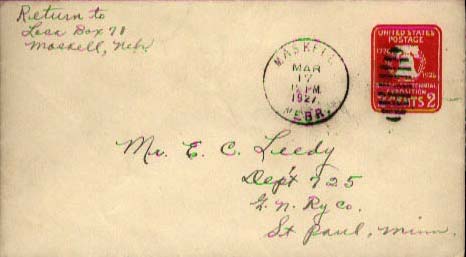 Return to
Box 71
Maskell, Nebr
MASKELL
MAR
17
12 PM
1927
NEBR.
UNITED STATES
POSTAGE
1776
1926
EXPOSITION
CENTS 2
Mr. E. C. Leedy
Dep't 725
G. N. Ry Co.
St Paul, Minn.